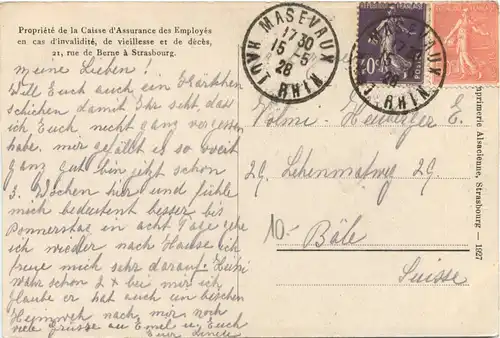 Propriété de la Caisse d'Assurance des Employés
en cas d'invalidité, de vieillesse et de décès,
21, rue de Berne à Strasbourg.
Meine Lieben!
Will Euch auch ein Kärtchen
schicken damit Ihr seht dass
ich Euch nicht ganz vergessen
habe. mir gefällt es so weit
ganz gut bin jetzt schon
3. Wochen hier und fühle
mich bedeutent besser bis
Donnerstag in acht Tage gehe
ich wieder nach Hause ich
freue mich sehr darauf.
schon bei mir ich
glaube er hat auch ein bischen
Heimweh nach mir noch
viele Grüsse an Emel u Euch
MASEVAUX
17 30
15 - 5
28
HAUT RHIN
MASEVAUX
17 30
28
RHIN
20
POSTES
E.
29. Lehenmattweg 29.
Bâle
Suisse
Imprimerie Alsacienne, Strasbourg — 1927